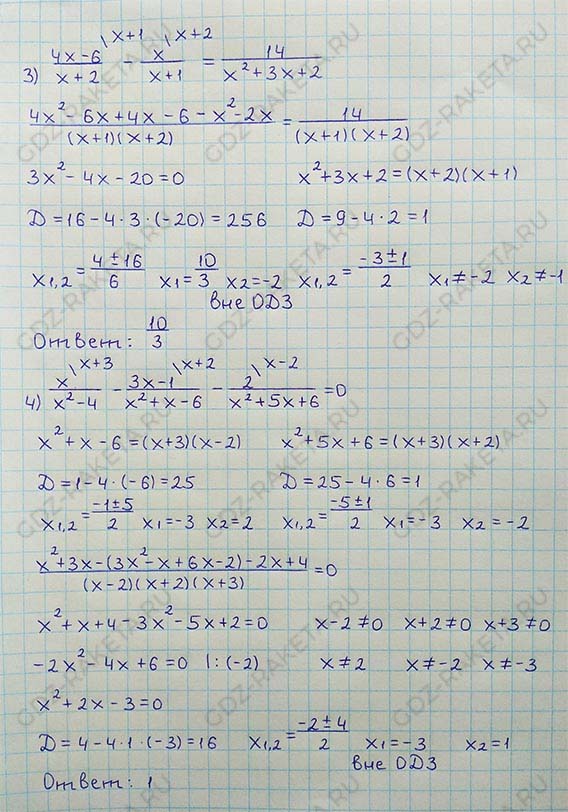 3) \frac{4x-6}{x+2}^{\x+1} - \frac{x}{x+1}^{\x+2} = \frac{14}{x²+3x+2}
\frac{4x²-6x+4x-6-x²-2x}{(x+1)(x+2)} = \frac{14}{(x+1)(x+2)}
3x²-4x-20=0 x²+3x+2=(x+2)(x+1)
D=16-4·3·(-20)=256 D=9-4·2=1
x₁,₂=\frac{4±16}{6} x₁=\frac{10}{3} x₂=-2 x₁,₂=\frac{-3±1}{2} x₁≠-2 x₂≠-1
вне ОДЗ
Ответ: \frac{10}{3}
4) \frac{x}{x²-4}^{\x+3} - \frac{3x-1}{x²+x-6}^{\x+2} - \frac{2}{x²+5x+6}^{\x-2} =0
x²+x-6=(x+3)(x-2) x²+5x+6=(x+3)(x+2)
D=1-4·(-6)=25 D=25-4·6=1
x₁,₂=\frac{-1±5}{2} x₁=-3 x₂=2 x₁,₂=\frac{-5±1}{2} x₁=-3 x₂=-2
\frac{x²+3x-(3x²-x+6x-2)-2x+4}{(x-2)(x+2)(x+3)}=0
x²+x+4-3x²-5x+2=0 x-2≠0 x+2≠0 x+3≠0
-2x²-4x+6=0 |:(-2) x≠2 x≠-2 x≠-3
x²+2x-3=0
D=4-4·1·(-3)=16 x₁,₂=\frac{-2±4}{2} x₁=-3 x₂=1
вне ОДЗ
Ответ: 1
GDZ-RAKETA.RU